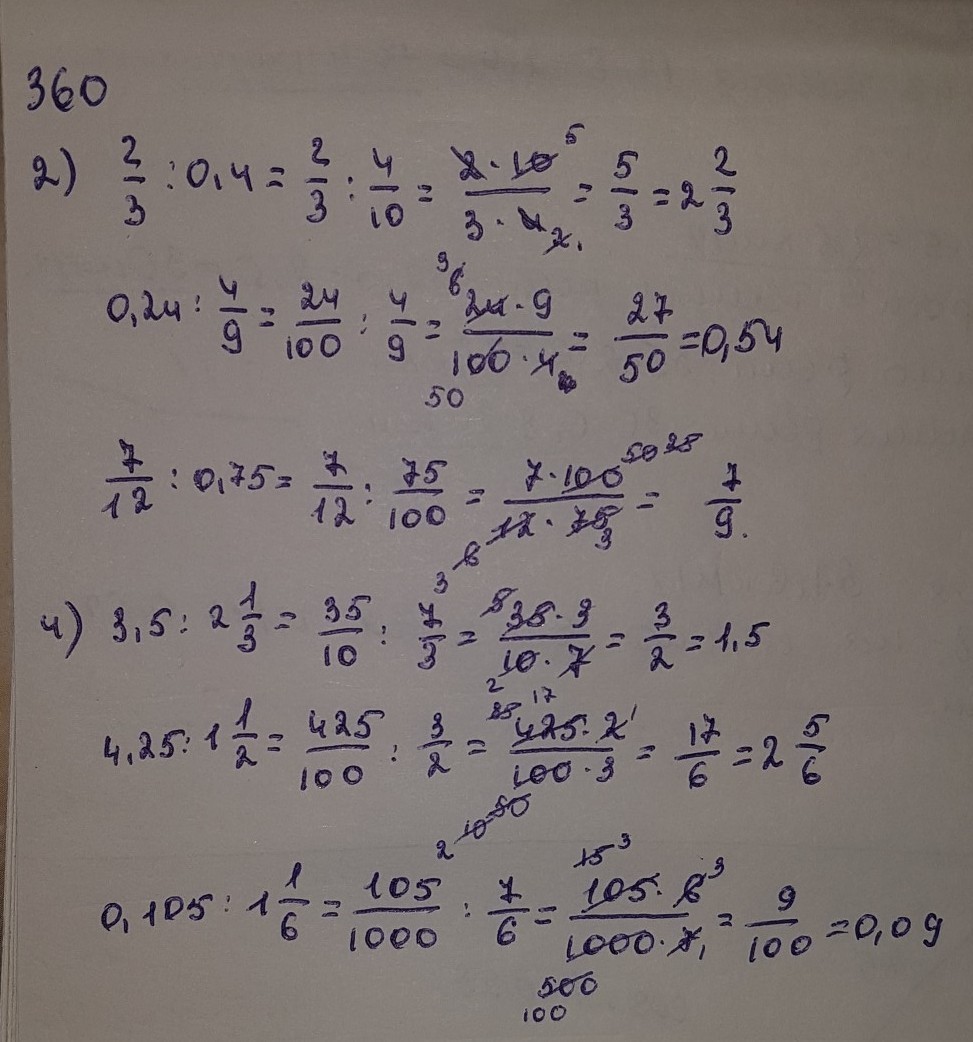 360
2) 2/3 : 0,4 = 2/3 : 4/10 = 2·10 5 / 3·4 2, = 5/3 = 2 2/3
0,24 : 4/9 = 24/100 : 4/9 = 3 6 24·9 / 100·4 50 = 27/50 = 0,54
7/12 : 0,75 = 7/12 : 75/100 = 7·100 50 25 / 3 6 12·75 3 = 7/9.
4) 3,5 : 2 1/3 = 35/10 : 7/3 = 5 35·3 / 10·7 2 = 3/2 = 1,5
4,25 : 1 1/2 = 425/100 : 3/2 = 85 17 425·2 1 / 100·3 2 10 50 = 17/6 = 2 5/6
0,105 : 1 1/6 = 105/1000 : 7/6 = 15 3 105·6 3 / 1000·7, 500 100 = 9/100 = 0,09